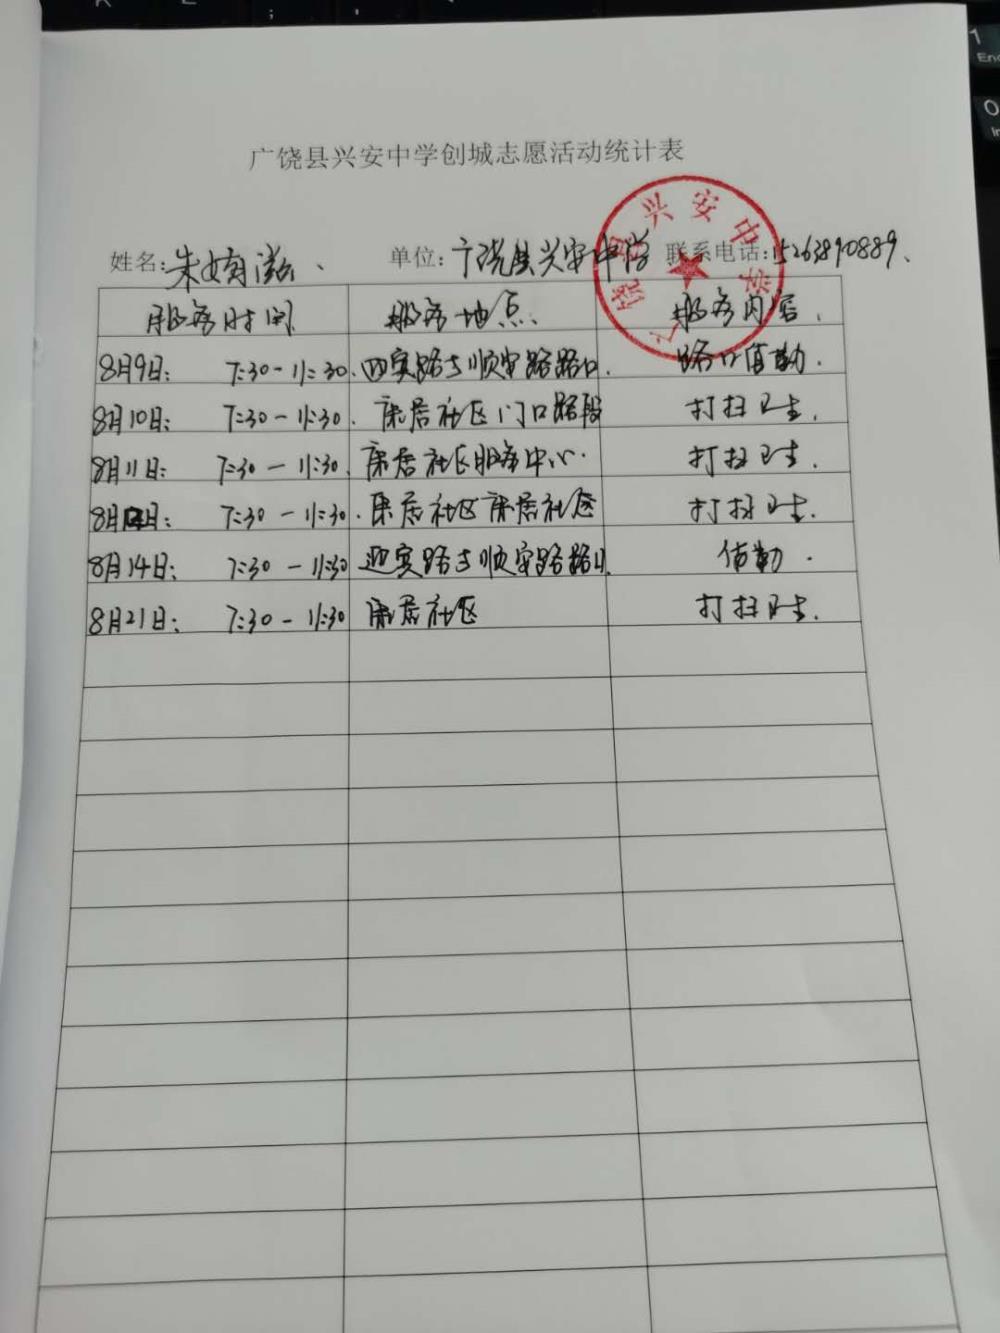 广饶县兴安中学创城志愿活动统计表
姓名: 朱 单位: 广饶县兴安中学 联系电话: 15263890889.
广饶县兴安中学
服务时间 服务地点 服务内容.
8月9日: 7:30-11:30. 迎宾路与顺安路路口. 路口值勤.
8月10日: 7:30-11:30. 康居社区门口路段 打扫卫生.
8月11日: 7:30-11:30. 康居社区服务中心. 打扫卫生.
8月12日: 7:30-11:30. 康居社区康居社区 打扫卫生.
8月14日: 7:30-11:30 迎宾路与顺安路路口. 值勤.
8月21日: 7:30-11:30 康居社区 打扫卫生.